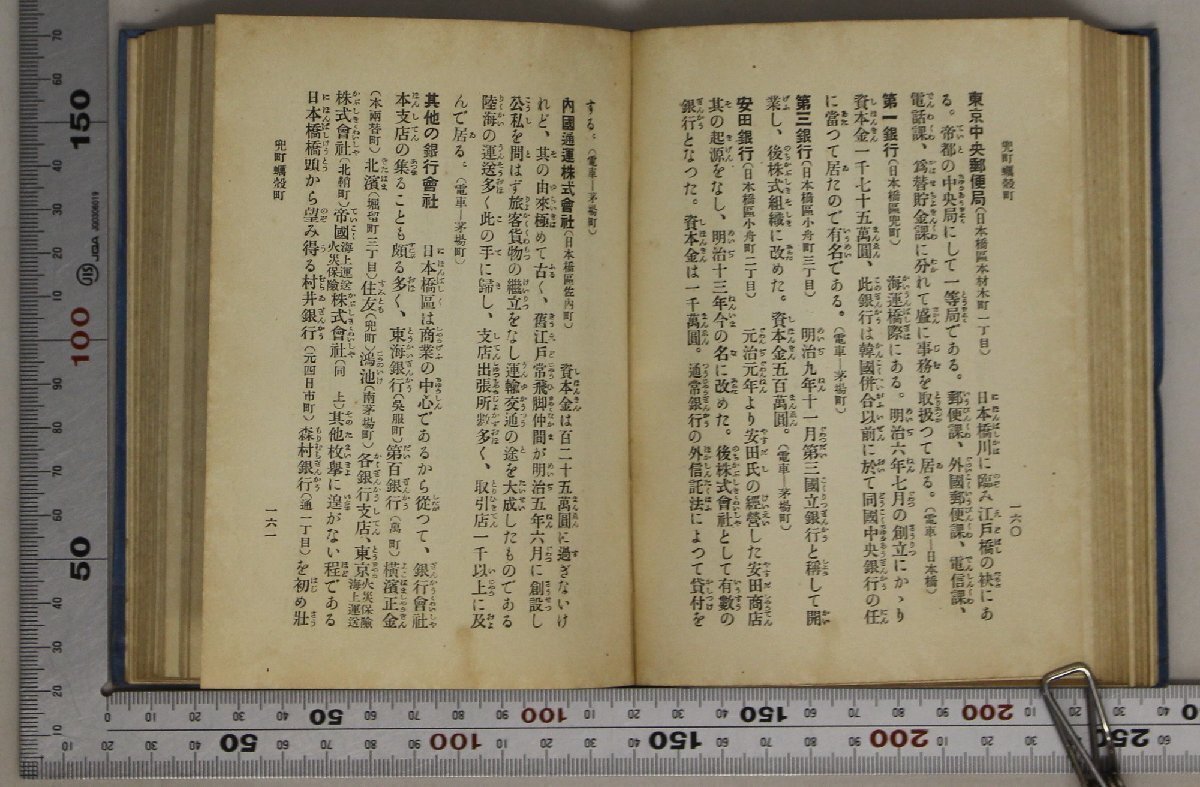 兜町蠣殼町
一六〇
東京中央郵便局(日本橋區本材木町一丁目) 日本橋川に臨み江戸橋の袂にあ
る。帝都の中央局にして一等局である。郵便課、外國郵便課、電信課、
電話課、爲替貯金課に分れて盛に事務を取扱つて居る。(電車―日本橋)
第一銀行(日本橋區兜町) 海運橋際にある。明治六年七月の創立にかゝり
資本金一千七十五萬圓、此銀行は韓國併合以前に於て同國中央銀行の任
に當つて居たので有名である。(電車―茅場町)
第三銀行(日本橋區小舟町三丁目) 明治九年十一月第三國立銀行と稱して開
業し、後株式組織に改めた。資本金五百萬圓。(電車―茅場町)
安田銀行(日本橋區小舟町二丁目) 元治元年より安田氏の經營した安田商店
其の起源をなし、明治十三年今の名に改めた。後株式會社として有數の
銀行となつた。資本金は一千萬圓。通常銀行の外信託法によつて貸付を
する。(電車―茅場町)
內國通運株式會社(日本橋區佐內町) 資本金は百二十五萬圓に過ぎないけ
れど、其の由來極めて古く、舊江戸常飛脚仲間が明治五年六月に創設し
公私を問はず旅客貨物の繼立をなし運輸交通の途を大成したものである
陸海の運送多く此の手に歸し、支店出張所數多く、取引店一千以上に及
んで居る。(電車―茅場町)
其他の銀行會社 日本橋區は商業の中心であるから從つて、銀行會社
本支店の集ることも頗る多く、東海銀行(吳服町)第百銀行(萬 町)橫濱正金
(本兩替町)北濱(堀留町三丁目)住友(兜町)鴻池(南茅場町)各銀行支店、東京火災保險海上運送
株式會社(北鞘町)帝國海上運送火災保險株式會社(同 上)其他枚擧に遑がない程である
日本橋橋頭から望み得る村井銀行(元四日市町)森村銀行(通一丁目)を初め壯
兜町蠣殼町
一六一
JIS
JQA
50
100
150
200
250